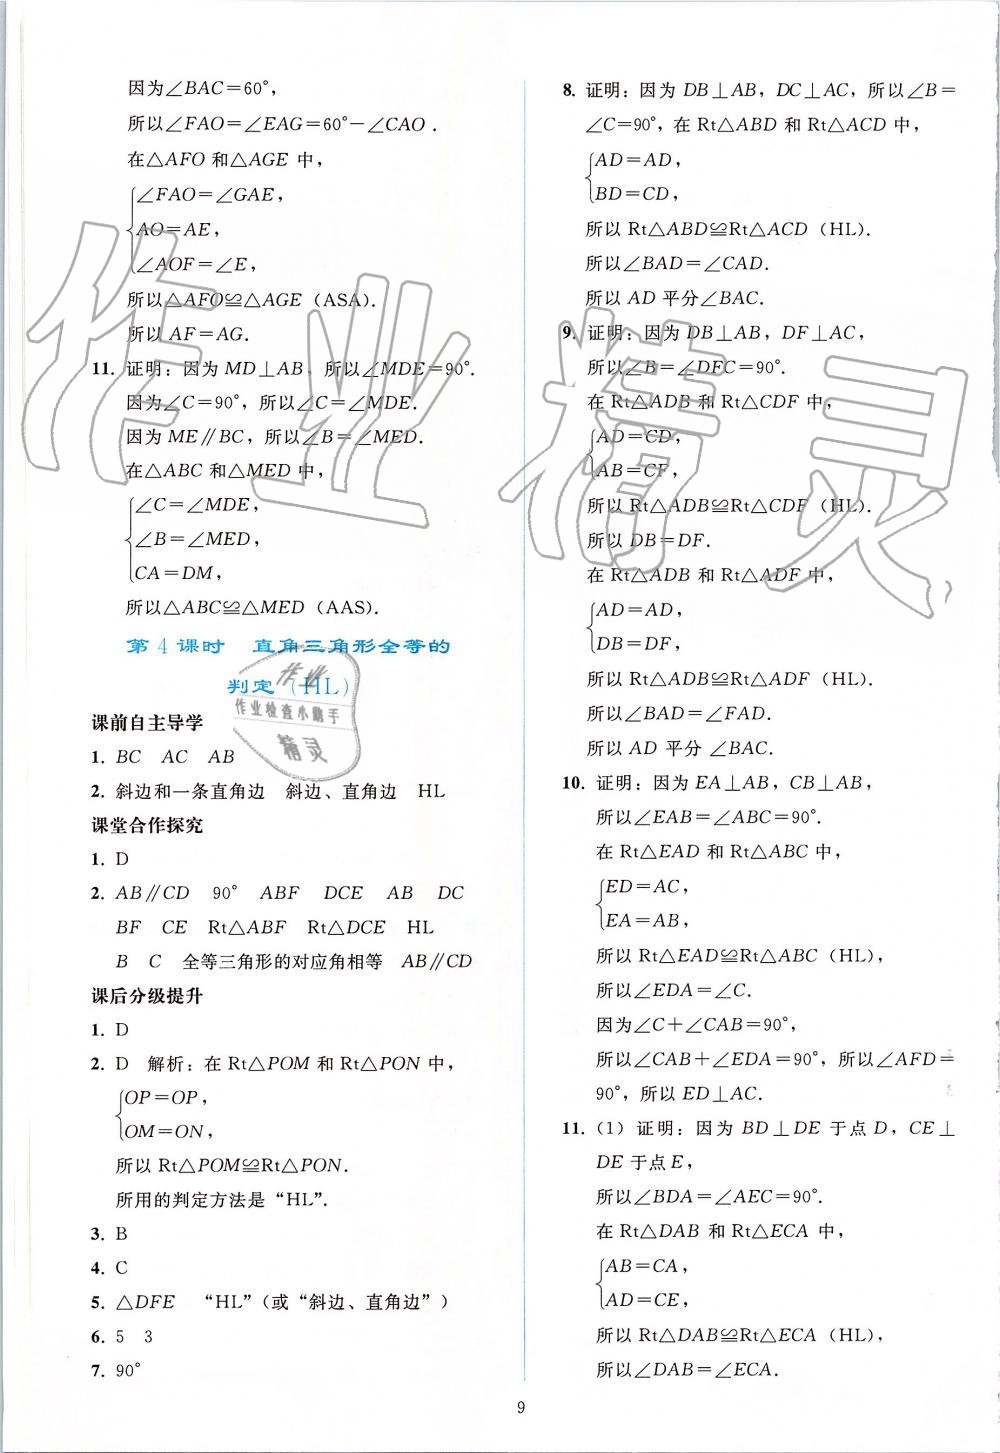 因为∠BAC=60°,
所以∠FAO=∠EAG=60°-∠CAO .
在△AFO 和△AGE 中,
∠FAO=∠GAE,
AO=AE,
∠AOF=∠E,
所以△AFO≌△AGE (ASA).
所以 AF=AG.
11. 证明:因为 MD⊥AB, 所以∠MDE=90°.
因为∠C=90°,所以∠C=∠MDE.
因为 ME∥BC,所以∠B=∠MED.
在△ABC 和△MED 中,
∠C=∠MDE,
∠B=∠MED,
CA=DM,
所以△ABC≌△MED (AAS).
第 4 课时 直角三角形全等的
判定(HL)
课前自主导学
1. BC AC AB
2. 斜边和一条直角边 斜边、直角边 HL
课堂合作探究
1. D
2. AB∥CD 90° ABF DCE AB DC
BF CE Rt△ABF Rt△DCE HL
B C 全等三角形的对应角相等 AB∥CD
课后分级提升
1. D
2. D 解析:在 Rt△POM 和 Rt△PON 中,
OP=OP,
OM=ON,
所以 Rt△POM≌Rt△PON.
所用的判定方法是“HL”.
3. B
4. C
5. △DFE “HL”(或“斜边、直角边”)
6. 5 3
7. 90°
8. 证明:因为 DB⊥AB,DC⊥AC,所以∠B=
∠C=90°,在 Rt△ABD 和 Rt△ACD 中,
AD=AD,
BD=CD,
所以 Rt△ABD≌Rt△ACD (HL).
所以∠BAD=∠CAD.
所以 AD 平分∠BAC.
9. 证明:因为 DB⊥AB,DF⊥AC,
所以∠B=∠DFC=90°.
在 Rt△ADB 和 Rt△CDF 中,
AD=CD,
AB=CF,
所以 Rt△ADB≌Rt△CDF (HL).
所以 DB=DF.
在 Rt△ADB 和 Rt△ADF 中,
AD=AD,
DB=DF,
所以 Rt△ADB≌Rt△ADF (HL).
所以∠BAD=∠FAD.
所以 AD 平分 ∠BAC.
10. 证明:因为 EA⊥AB,CB⊥AB,
所以∠EAB=∠ABC=90°.
在 Rt△EAD 和 Rt△ABC 中,
ED=AC,
EA=AB,
所以 Rt△EAD≌Rt△ABC (HL),
所以∠EDA=∠C.
因为∠C+∠CAB=90°,
所以∠CAB+∠EDA=90°,所以∠AFD=
90°,所以 ED⊥AC.
11. (1) 证明:因为 BD⊥DE 于点 D,CE⊥
DE 于点 E,
所以∠BDA=∠AEC=90°.
在 Rt△DAB 和 Rt△ECA 中,
AB=CA,
AD=CE,
所以 Rt△DAB≌Rt△ECA (HL),
所以∠DAB=∠ECA.
9
作业精灵
作业
作业检查小助手
精灵